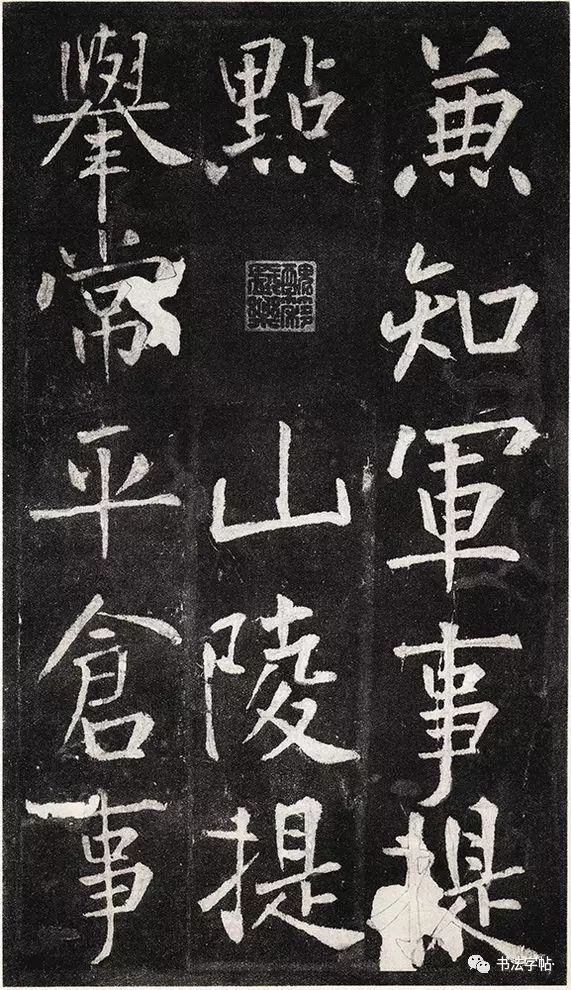 兼知軍事提
點山陵提
舉常平倉事
书法字帖